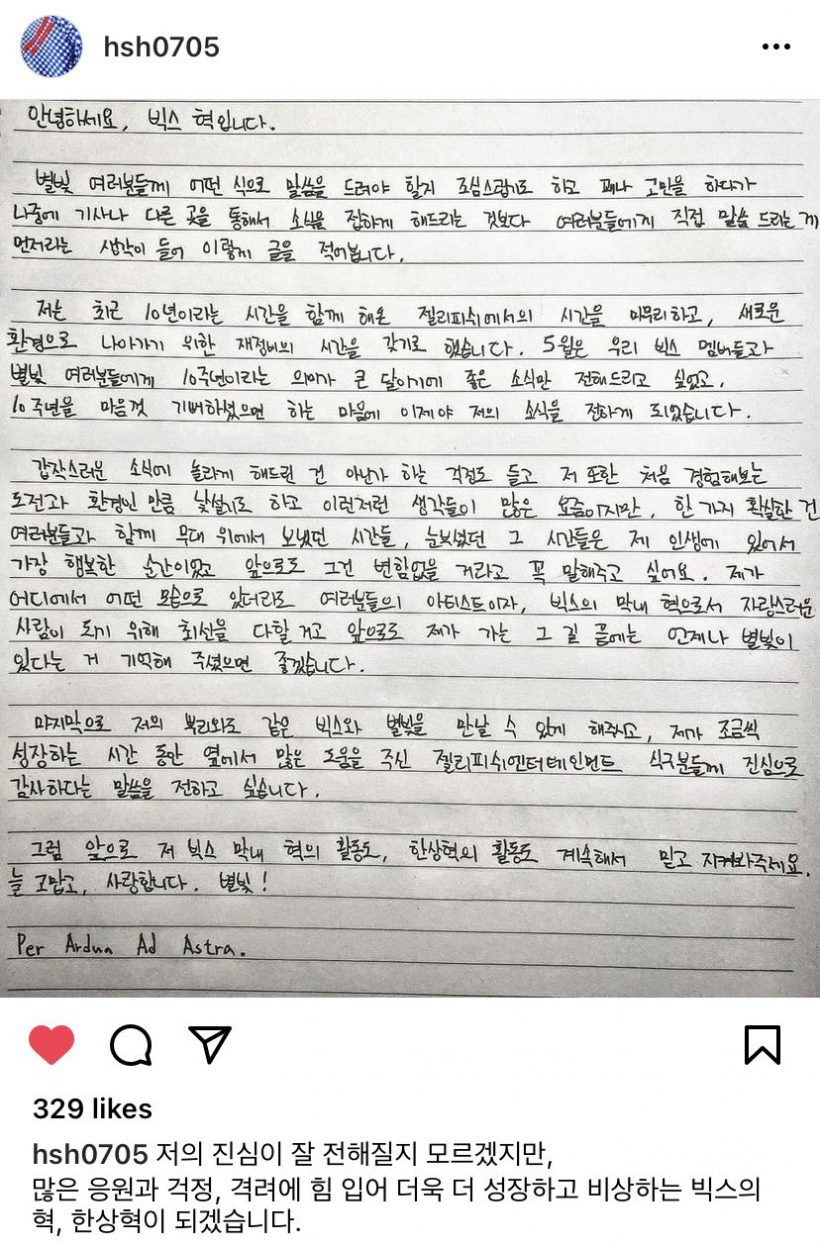 hsh0705
안녕하세요, 빅스 혁입니다.
별빛 여러분들께 어떤 식으로 말씀을 드려야 할지 조심스럽기도 하고 꽤나 고민을 하다가
나중에 기사나 다른 곳을 통해서 소식을 접하게 해드리는 것보다 여러분들에게 직접 말씀 드리는게
먼저라는 생각이 들어 이렇게 글을 적어봅니다.
저는 최근 10년이라는 시간을 함께 해온 젤리피쉬에서의 시간을 마무리하고, 새로운
환경으로 나아가기 위한 재정비의 시간을 갖기로 했습니다. 5월은 우리 빅스 멤버들과
별빛 여러분들에게 10주년이라는 의미가 큰 달이기에 좋은 소식만 전해드리고 싶었고,
10주년을 마음껏 기뻐하셨으면 하는 마음에 이제야 저의 소식을 전하게 되었습니다.
갑작스러운 소식에 놀라게 해드린 건 아닌가 하는 걱정도 들고 저 또한 처음 경험해보는
도전과 환경인 만큼 낯설기도 하고 이런저런 생각들이 많은 요즘이지만, 한 가지 확실한 건
여러분들과 함께 무대 위에서 보냈던 시간들, 눈부셨던 그 시간들은 제 인생에 있어서
가장 행복한 순간이었고 앞으로도 그건 변함없을 거라고 꼭 말해주고 싶어요. 제가
어디에서 어떤 모습으로 있더라도 여러분들의 아티스트이자, 빅스의 막내 혁으로서 자랑스러운
사람이 되기 위해 최선을 다할 거고 앞으로도 제가 가는 그 길 끝에는 언제나 별빛이
있다는 거 기억해 주셨으면 좋겠습니다.
마지막으로 저의 뿌리와도 같은 빅스와 별빛을 만날 수 있게 해주시고, 제가 조금씩
성장하는 시간 동안 옆에서 많은 도움을 주신 젤리피쉬엔터테인먼트 식구분들께 진심으로
감사하다는 말씀을 전하고 싶습니다.
그럼 앞으로 저 빅스 막내 혁의 활동도, 한상혁의 활동도 계속해서 믿고 지켜봐주세요.
늘 고맙고, 사랑합니다. 별빛!
Per Ardua Ad Astra.
329 likes
hsh0705 저의 진심이 잘 전해질지 모르겠지만,
많은 응원과 걱정, 격려에 힘 입어 더욱 더 성장하고 비상하는 빅스의
혁, 한상혁이 되겠습니다.